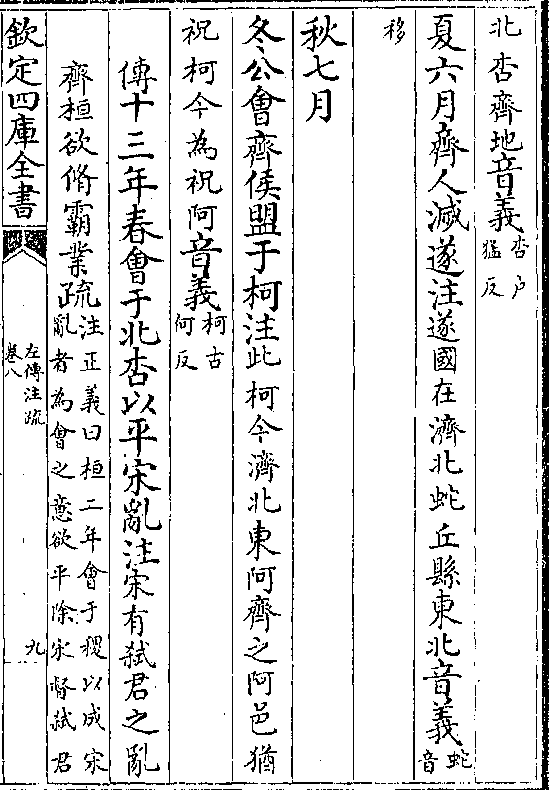 北杏齊地音義杏户猛反
夏六月齊人滅遂注遂國在濟北蛇丘縣東北音義蛇音
移
秋七月
冬公會齊侯盟于柯注此柯今濟北東阿齊之阿邑猶
祝柯今為祝阿音義柯古何反
傳十三年春會于北杏以平宋亂注宋有弑君之亂
齊桓欲脩霸業疏注正義曰桓二年會于稷以成宋亂者為會之意欲平除宋督弑君
欽定四庫全書
左傳注疏
卷八
九